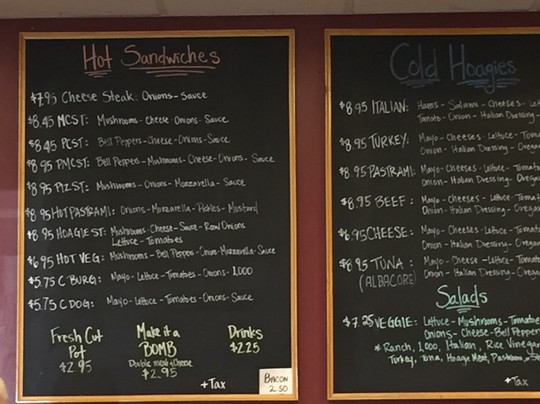 Hot Sandwiches
$7.95 Cheese Steak: Onions - Sauce
$8.45 MCST: Mushrooms - Cheese - Onions - Sauce
$8.45 PCST: Bell Peppers - Cheese - Onions - Sauce
$8.95 PMCST: Bell Peppers - Mushrooms - Cheese - Onions - Sauce
$8.95 PIZST: Mushrooms - Onions - Mozzarella - Sauce
$8.95 HOT PASTRAMI: Onions - Mozzarella - Pickles - Mustard
$8.95 HOAGIEST: Mushrooms - Cheese - Sauce - Raw Onions
Lettuce - Tomatoes
$6.95 HOT VEG: Mushrooms - Bell Peppers - Onion - Mozzarella - Sauce
$5.75 C BURG: Mayo - Lettuce - Tomatoes - Onions - 1,000
$5.75 C DOG: Mayo - Lettuce - Tomatoes - Onions - Sauce
Fresh Cut
Pot
$2.95
Make it a
BOMB
Double meat & Cheese
$2.95
Drinks
$2.25
+ Tax
BACON
2.50
Cold Hoagies
$8.95 ITALIAN: Hams - Salamis - Cheeses - Let
Tomato - Onion - Italian Dressing -
$8.95 TURKEY: Mayo - Cheeses - Lettuce - Tomat
Onion - Italian Dressing - Orega
$8.95 PASTRAMI: Mayo - Cheeses - Lettuce - Tomat
Onion - Italian Dressing - Oregan
$8.95 BEEF: Mayo - Cheeses - Lettuce - Tomat
Onion - Italian Dressing - Oregan
$6.95 CHEESE: Mayo - Cheeses - Lettuce - Tom
Onion - Italian Dressing - Oregan
$8.95 TUNA: Mayo - Cheese - Lettuce - Tomat
(ALBACORE) Onion - Italian Dressing - Oregan
Salads
$7.25 VEGGIE: Lettuce - Mushrooms - Tomatoe
Onions - Cheese - Bell Peppers
* Ranch, 1,000, Italian, Rice Vinegar
Turkey, Tuna, Hoagie Meat, Pastrami
+ Tax